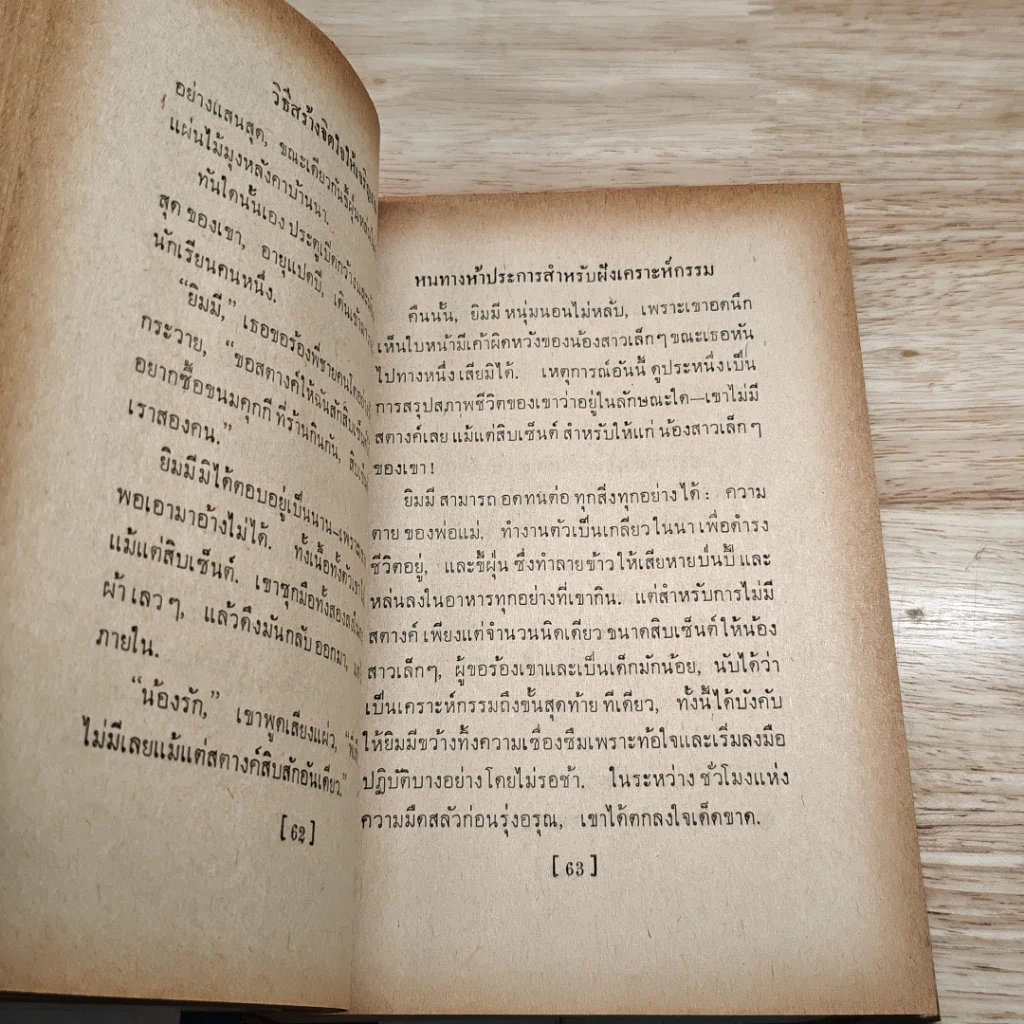 วิธีสร้างจิตใจให้เจริญ
อย่างแสนสุด, ขณะเดียวกันขี้ฝุ่นหล่นใน
แผ่นไม้มุงหลังคาบ้านนา.
ทันใดนั้นเอง ประตูเปิดกว้างและน้อง
สุด ของเขา, อายุแปดปี, เดินเข้ามา
นักเรียนคนหนึ่ง.
“ยิมมี,” เธอขอร้องพี่ชายคนโตอย่าง
กระวาย, “ขอสตางค์ให้ฉันสักสิบเซ็นต์
อยากซื้อขนมคุกกี ที่ร้านกินกัน,
เราสองคน.”
ยิมมีมิได้ตอบอยู่เป็นนาน—เพราะ
พอเอามาอ้างไม่ได้. ทั้งเนื้อทั้งตัวเขา
แม้แต่สิบเซ็นต์. เขาซุกมือทั้งสองลง
ผ้า เลว ๆ, แล้วดึงมันกลับ ออกมา,
ภายใน.
“น้องรัก,” เขาพูดเสียงแผ่ว,
ไม่มีเลยแม้แต่สตางค์สิบสักอันเดียว.”
[ 62 ]
หนทางห้าประการสำหรับฝังเคราะห์กรรม
คืนนั้น, ยิมมี หนุ่มนอนไม่หลับ, เพราะเขาอดนึก
เห็นใบหน้ามีเค้าผิดหวังของน้องสาวเล็กๆ ขณะเธอหัน
ไปทางหนึ่ง เสียมิได้. เหตุการณ์อันนี้ ดูประหนึ่ง เป็น
การสรุปสภาพชีวิตของเขาว่าอยู่ในลักษณะใด—เขาไม่มี
สตางค์เลย แม้แต่สิบเซ็นต์ สำหรับให้แก่ น้องสาวเล็ก ๆ
ของเขา !
ยิมมี สามารถ อดทนต่อ ทุกสิ่งทุกอย่าง ได้ : ความ
ตาย ของพ่อแม่, ทำงานตัวเป็นเกลียว ในนา เพื่อดำรง
ชีวิตอยู่, และขี้ฝุ่น ซึ่งทำลายข้าว ให้เสียหายบ่นปี้ และ
หล่นลงในอาหารทุกอย่างที่เขากิน. แต่สำหรับการไม่มี
สตางค์ เพียงแต่จำนวนนิดเดียว ขนาดสิบเซ็นต์ ให้น้อง
สาวเล็กๆ, ผู้ขอร้องเขาและเป็นเด็กมักน้อย, นับได้ว่า
เป็นเคราะห์กรรมถึงขั้นสุดท้าย ทีเดียว, ทั้งนี้ ได้บังคับ
ให้ยิมมีขว้างทิ้งความเซื่องซึมเพราะท้อใจและเริ่มลงมือ
ปฏิบัติบางอย่าง โดยไม่รอช้า. ในระหว่าง ชั่วโมงแห่ง
ความมืดสลัวก่อนรุ่งอรุณ, เขาได้ตกลงใจเด็ดขาด.
[ 63 ]